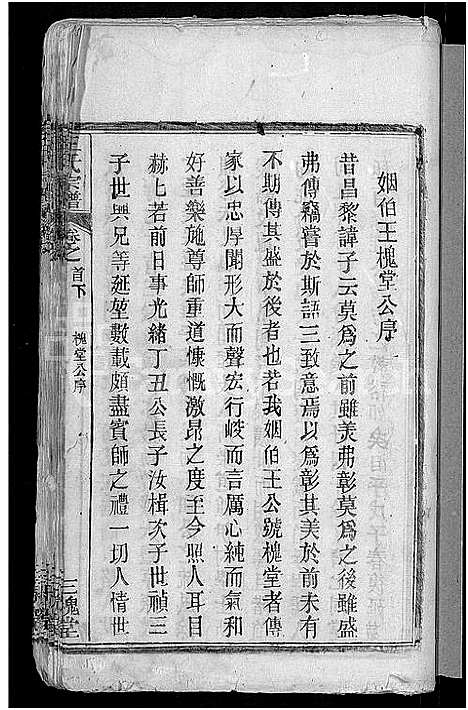 姻伯王槐堂公序
昔昌黎諱子云莫爲之前雖美弗彰莫爲之後雖盛
弗傳竊嘗於斯語三致意焉以爲彰其美於前未有
不期傳其盛於後者也若我姻伯王公號槐堂者傳
家以忠厚聞形大而聲宏行峻而言厲心純而氣和
好善樂施尊師重道慷慨激昂之度至今照人耳目
赫上若前日事光緒丁丑公長子汝楫次子世禎三
子世興兄等延堃數載頗盡賓師之禮一切人情世
王氏宗譜
卷之首下
槐堂公序
三槐堂